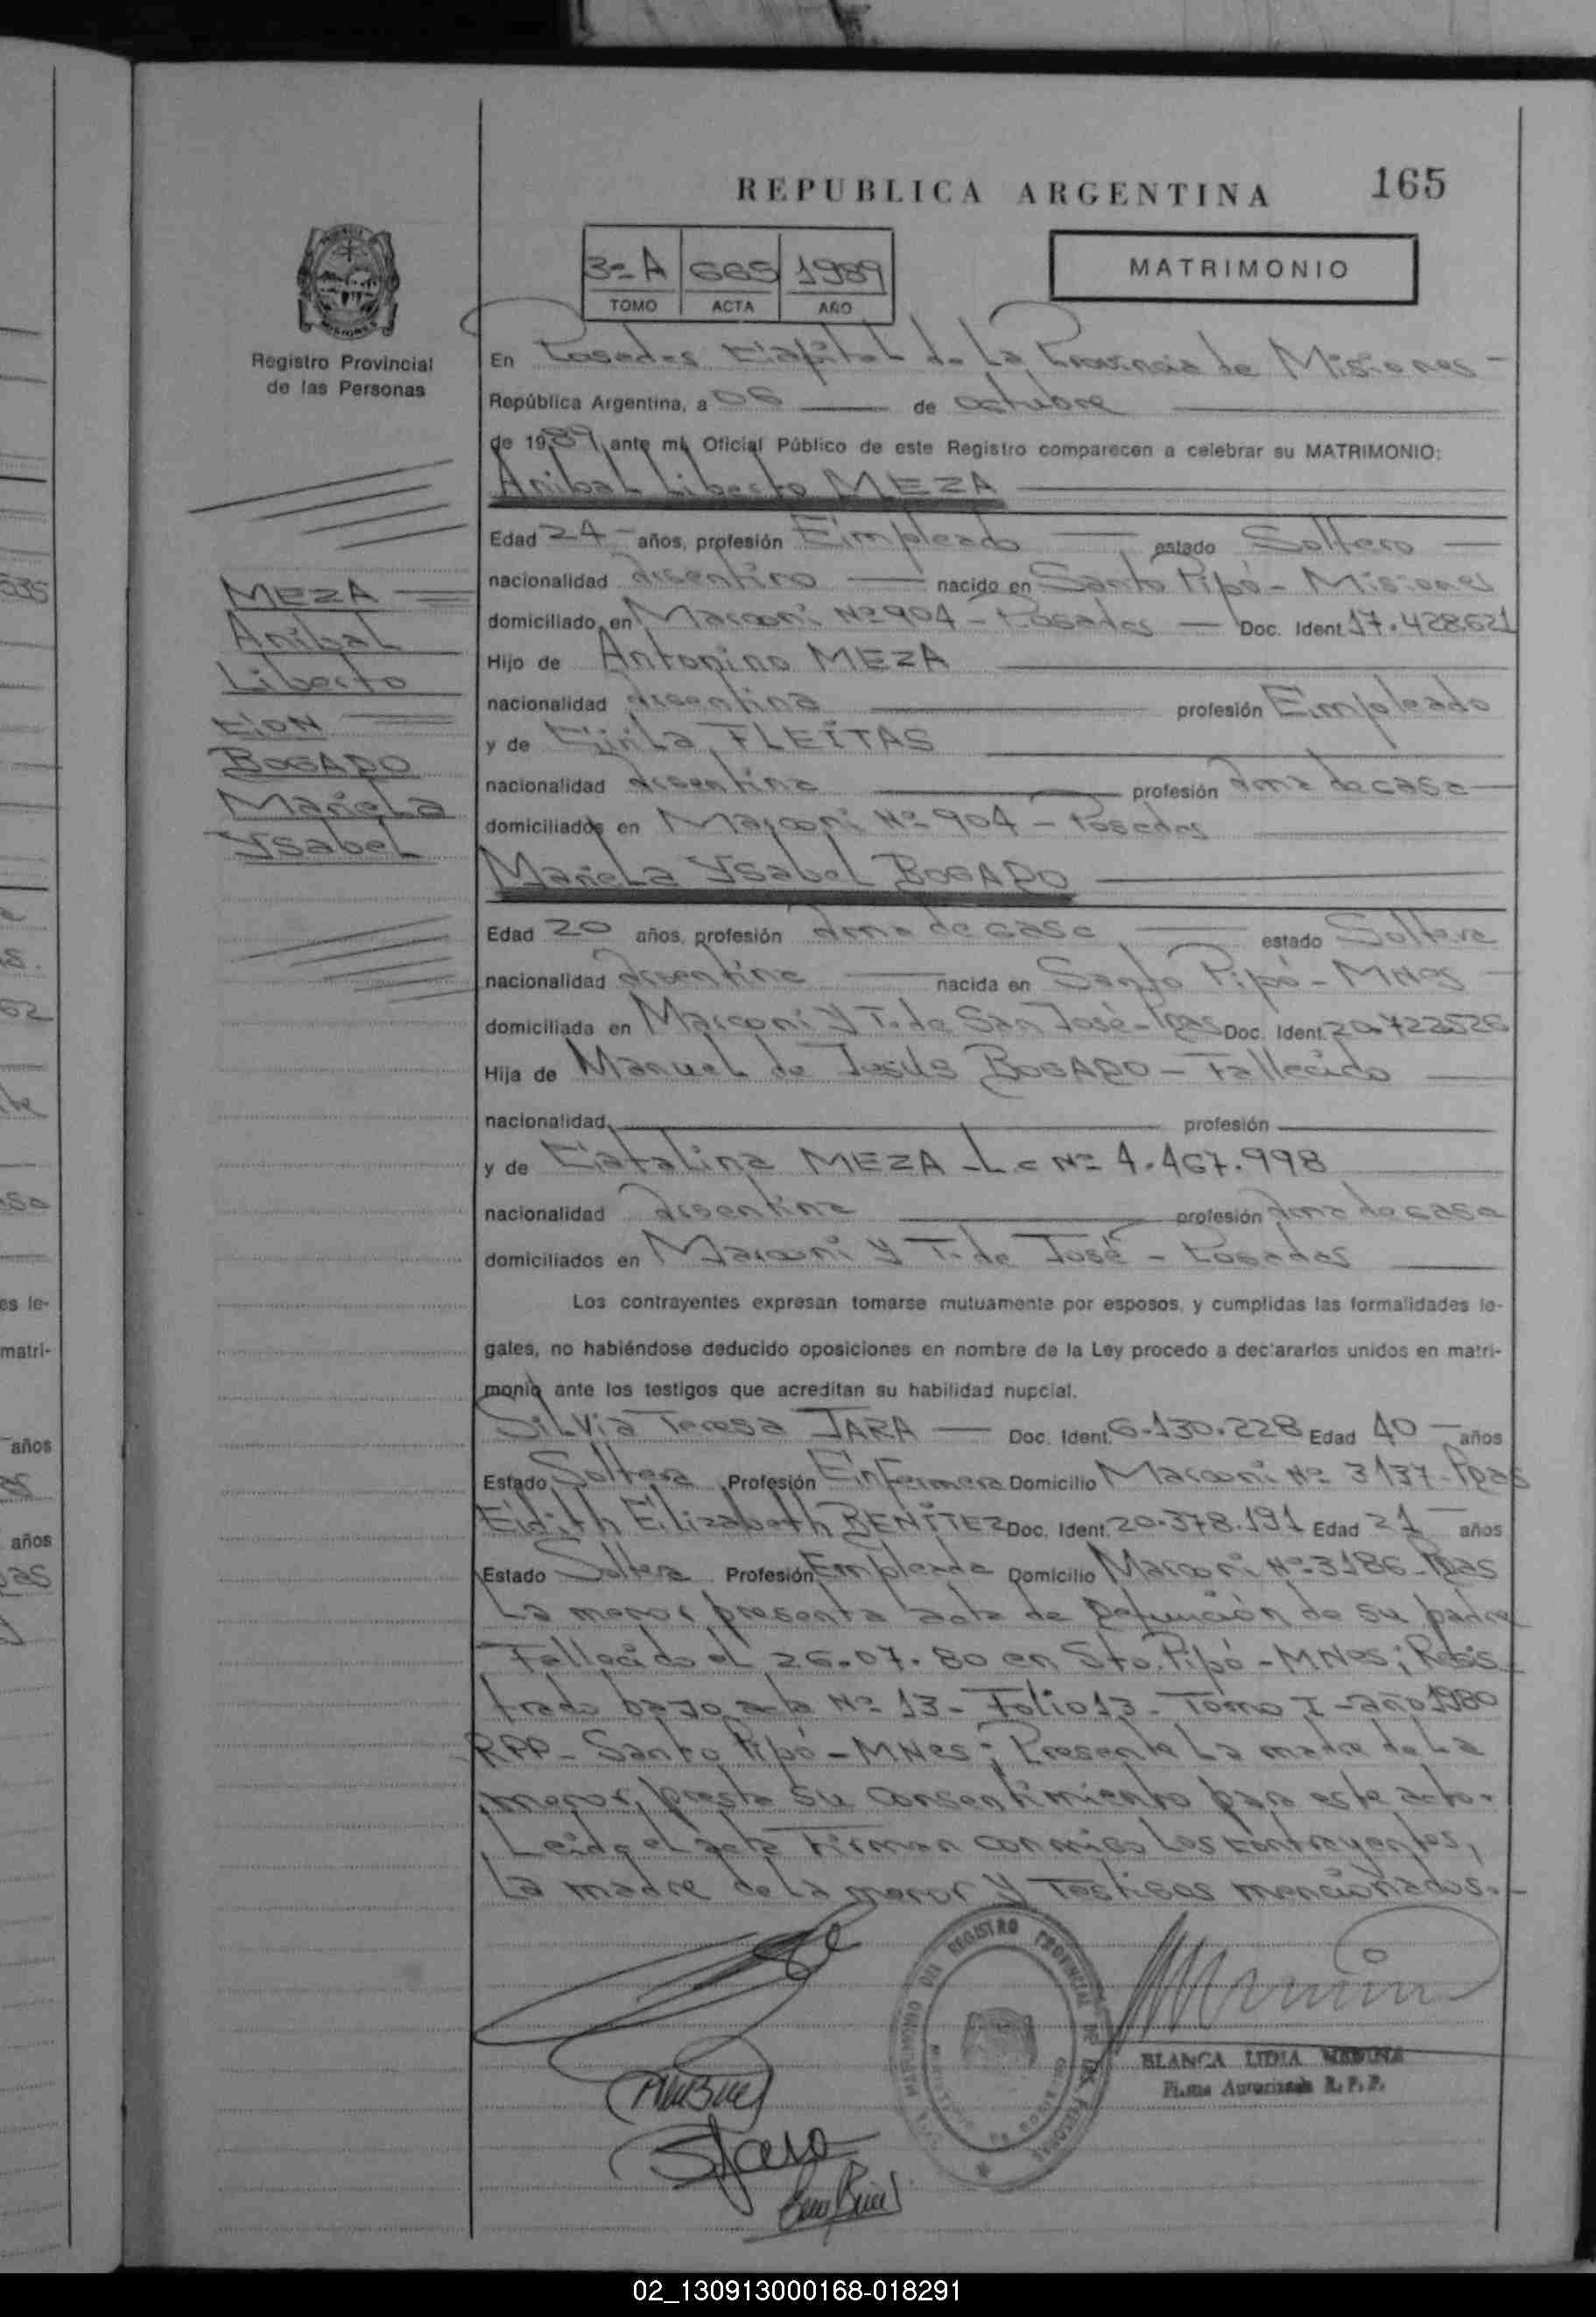 REPUBLICA ARGENTINA
165
3º A 665 1989
TOMO ACTA AÑO
MATRIMONIO
Registro Provincial
de las Personas
En Posadas Capital de La Provincia de Misiones
República Argentina, a 06 de octubre
de 1989, ante mí, Oficial Público de este Registro comparecen a celebrar su MATRIMONIO:
Anibal Liberto MEZA
Edad 24 años, profesión Empleado estado Soltero
nacionalidad argentino nacido en Santo Pipó - Misiones
domiciliado en Marconi Nº 904 - Posadas Doc. Ident. 17.428.621
Hijo de Antonino MEZA
nacionalidad argentina profesión Empleado
y de FLEITAS
nacionalidad argentina profesión ama de casa
domiciliados en Marconi Nº 904 - Posadas
MEZA
Anibal
Liberto
CON
BOGADO
Mariela
Ysabel
Mariela Ysabel BOGADO
Edad 20 años, profesión ama de casa estado Soltera
nacionalidad argentina nacida en Santo Pipó - MNes
domiciliada en Marconi y T. de San José - Pdas Doc. Ident. 20.722.526
Hija de Manuel de Jesús BOGADO - Fallecido
nacionalidad profesión
y de Catalina MEZA - L.C Nº 4.467.998
nacionalidad argentina profesión ama de casa
domiciliados en Marconi y T. de José - Posadas
Los contrayentes expresan tomarse mutuamente por esposos, y cumplidas las formalidades le-
gales, no habiéndose deducido oposiciones en nombre de la Ley procedo a declararlos unidos en matri-
monio ante los testigos que acreditan su habilidad nupcial.
Silvia Teresa JARA Doc. Ident. 6.130.228 Edad 40 años
Estado Soltera Profesión Enfermera Domicilio Marconi Nº 3137 - Pdas
Edith Elizabeth BENÍTEZ Doc. Ident. 20.378.191 Edad 21 años
Estado Soltera Profesión Empleada Domicilio Marconi Nº 3186 - Pdas
La menor presenta acta de Defunción de su padre
Fallecido el 26-07-80 en Sto. Pipó - MNes; Regis
trado bajo acta Nº 13 - Folio 13 - Tomo I - año 1980
RPP - Santo Pipó - MNes; Presente La madre de La
menor, presta su consentimiento para este acto.
Leida el acta Firman conmigo Los contrayentes,
La madre de La menor y Testigos mencionados.
REGISTRO PROVINCIAL DE LAS PERSONAS
BLANCA LIDIA MEDINA
Firma Autorizada R. P. P.
02_130913000168-018291